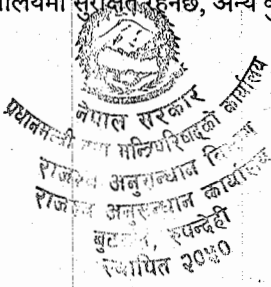 लयमा सुरक्षित रहनेछ, अन्य
नेपाल सरकार
प्रधानमन्त्री तथा मन्त्रिपरिषद्को कार्यालय
राजस्व अनुसन्धान विभाग
राजस्व अनुसन्धान कार्यालय
बुटवल, रुपन्देही
स्थापित २०५०